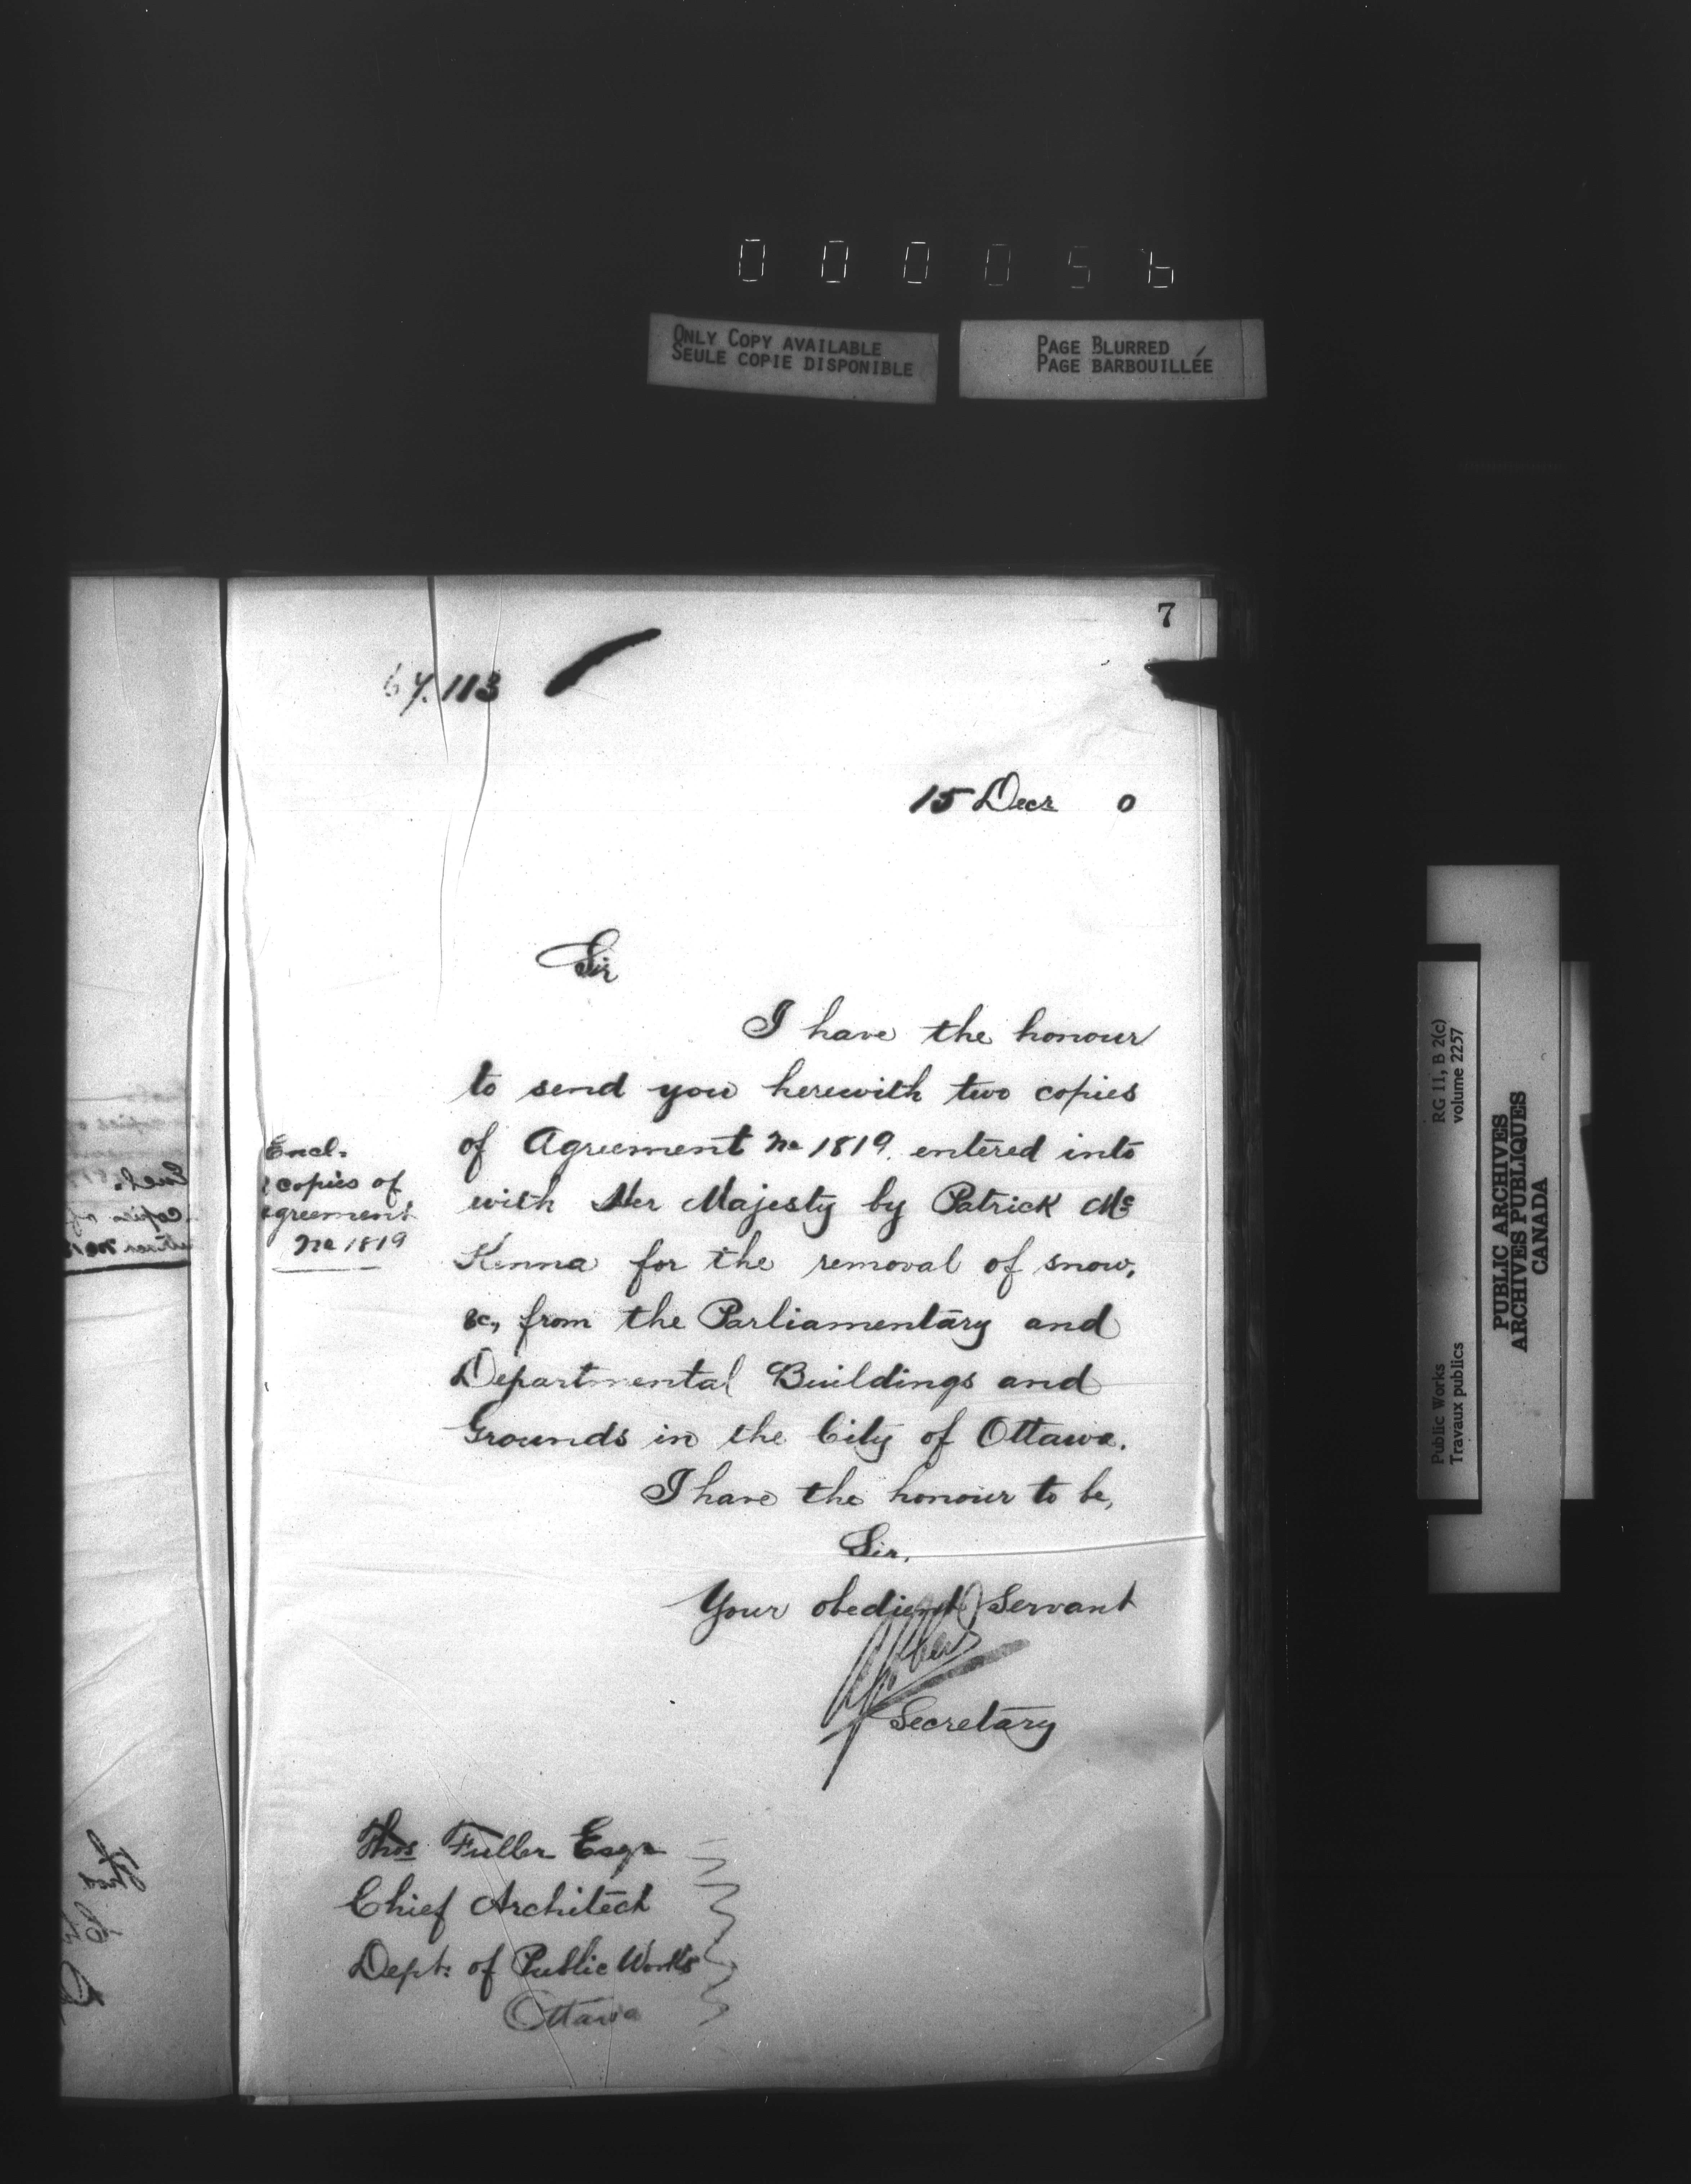 000056
ONLY COPY AVAILABLE
SEULE COPIE DISPONIBLE
PAGE BLURRED
PAGE BARBOUILLÉE
7
67.113
15 Decr 0
Sir
I have the honour
to send you herewith two copies
of Agreement No 1819. entered into
with Her Majesty by Patrick Mc
Kenna for the removal of snow,
&c., from the Parliamentary and
Departmental Buildings and
Grounds in the City of Ottawa.
I have the honour to be,
Sir,
Your obedient Servant
Secretary
Encl.
copies of
agreement
No 1819
Thos Fuller Esqr
Chief Architect
Dept: of Public Works
Ottawa
RG 11, B 2(c)
volume 2257
Public Works
Travaux publics
PUBLIC ARCHIVES
ARCHIVES PUBLIQUES
CANADA